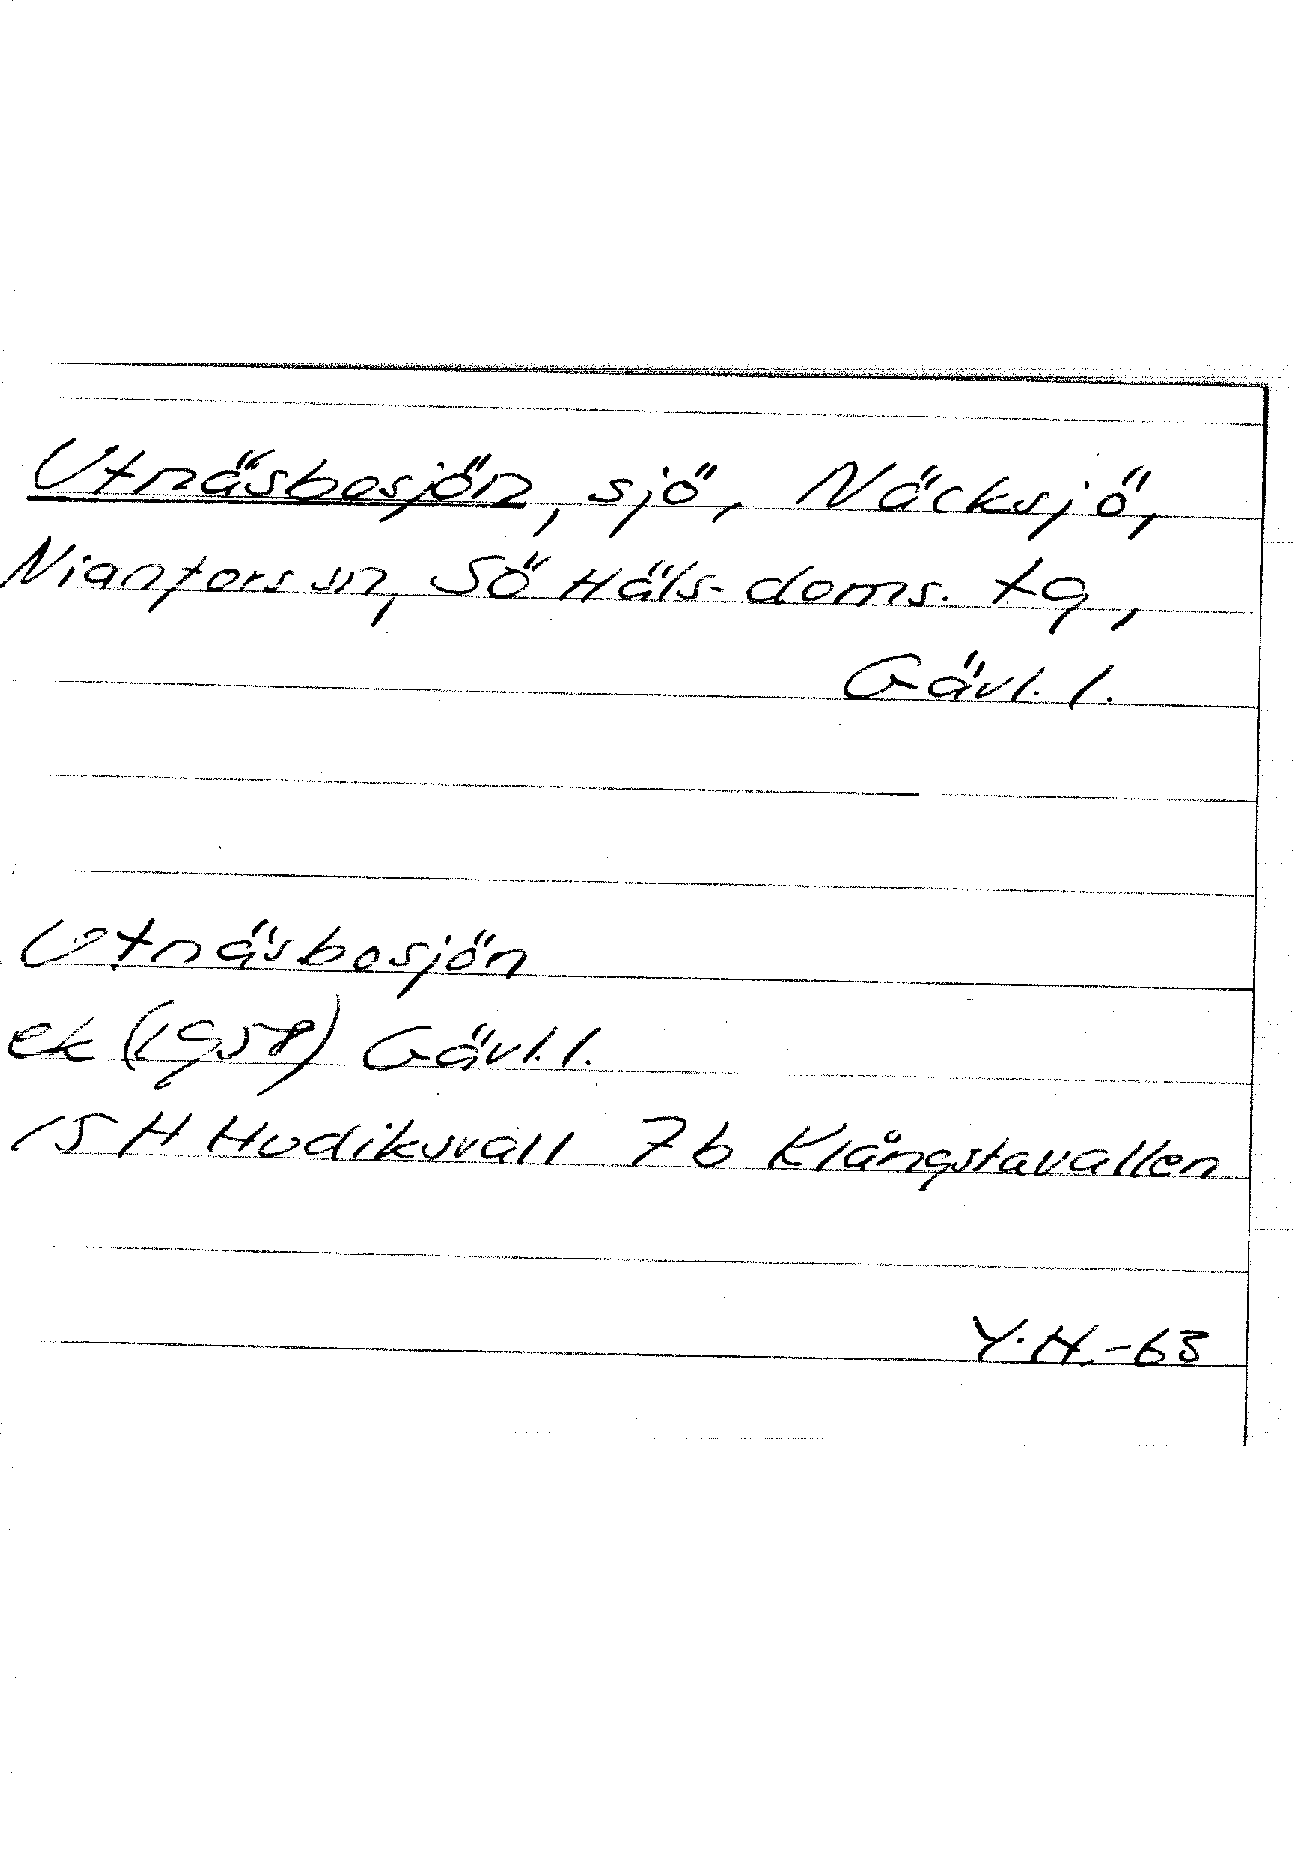 Utnäsbosjön, sjö, Näcksjö,
Nianfors sn, Sö Häls. doms. tg,
Gävl. l.
Utnäsbosjön
ek (1958) Gävl. l.
15 H Hudiksvall 7b Klångstavallen
Y. H. -63